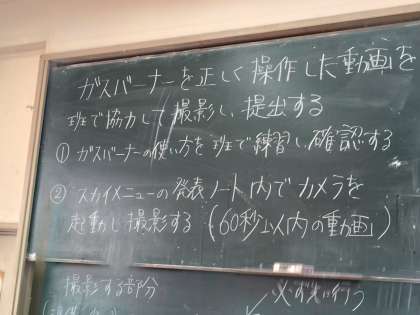 ガスバーナーを正しく操作した動画を
班で協力して撮影し、提出する
① ガスバーナーの使い方を班で練習し、確認する
② スカイメニューの発表ノート内でカメラを
起動し撮影する（60秒以内の動画）
撮影する部分
必ず先に行う